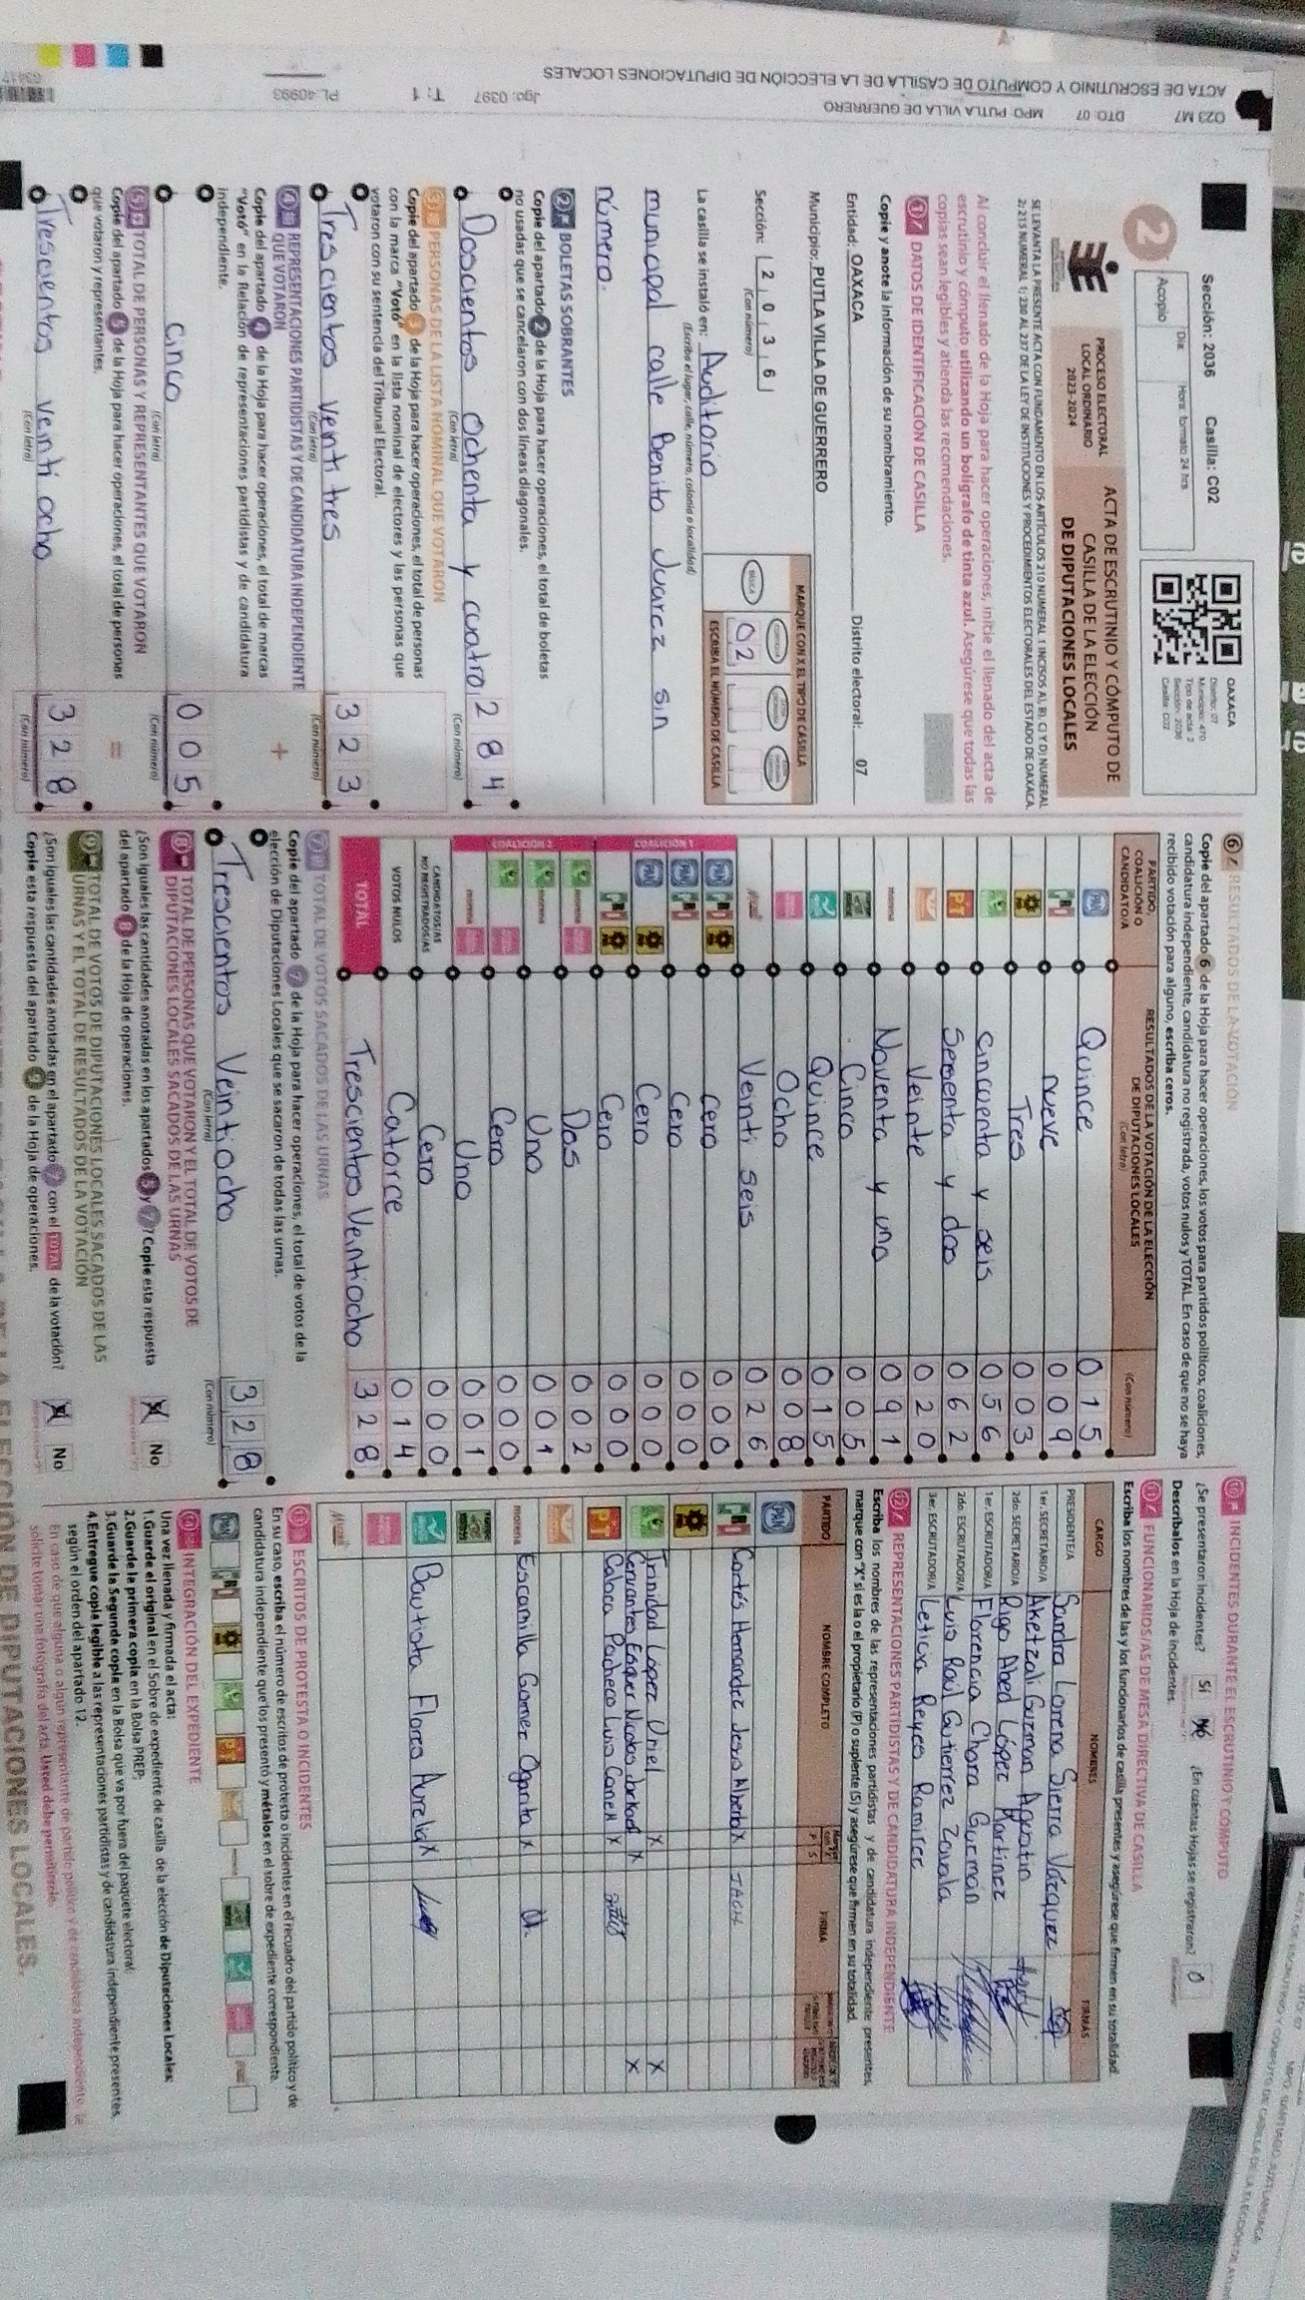 ACTA DE ESCRUTINIO Y CÓMPUTO DE CASILLA DE LA ELECCIÓN DE DIPUTACIONES LOCALES
O23 M7 DTO: 07 MPO: PUTLA VILLA DE GUERRERO
Jgo: 0397 T: 1 PL-40993
Sección: 2036 Casilla: C02
Acopio
Día:
Hora: formato 24 hrs
OAXACA
Distrito: 07
Municipio: 470
Tipo de acta: 2
Sección: 2036
Casilla: C02
2
PROCESO ELECTORAL
LOCAL ORDINARIO
2023-2024
ACTA DE ESCRUTINIO Y CÓMPUTO DE
CASILLA DE LA ELECCIÓN
DE DIPUTACIONES LOCALES
SE LEVANTA LA PRESENTE ACTA CON FUNDAMENTO EN LOS ARTÍCULOS 210 NUMERAL 1 INCISOS A), B), C) Y D) NUMERAL
2; 215 NUMERAL 1; 230 AL 237 DE LA LEY DE INSTITUCIONES Y PROCEDIMIENTOS ELECTORALES DEL ESTADO DE OAXACA.
Al concluir el llenado de la Hoja para hacer operaciones, inicie el llenado del acta de
escrutinio y cómputo utilizando un bolígrafo de tinta azul. Asegúrese que todas las
copias sean legibles y atienda las recomendaciones.
1 DATOS DE IDENTIFICACIÓN DE CASILLA
Copie y anote la información de su nombramiento.
Entidad: OAXACA Distrito electoral: 07
Municipio: PUTLA VILLA DE GUERRERO
Sección: 2 0 3 6
(Con número)
MARQUE CON X EL TIPO DE CASILLA
BÁSICA
02
ESCRIBA EL NÚMERO DE CASILLA
La casilla se instaló en: Auditorio
(Escriba el lugar, calle, número, colonia o localidad)
municipal calle Benito Juarez sin
número.
2 BOLETAS SOBRANTES
Copie del apartado 2 de la Hoja para hacer operaciones, el total de boletas
no usadas que se cancelaron con dos líneas diagonales.
Doscientos ochenta y cuatro 2 8 4
(Con letra) (Con número)
3 PERSONAS DE LA LISTA NOMINAL QUE VOTARON
Copie del apartado 3 de la Hoja para hacer operaciones, el total de personas
con la marca "Votó" en la lista nominal de electores y las personas que
votaron con su sentencia del Tribunal Electoral.
Trescientos Venti tres 3 2 3
(Con letra) (Con número)
4 REPRESENTACIONES PARTIDISTAS Y DE CANDIDATURA INDEPENDIENTE
QUE VOTARON
Copie del apartado 4 de la Hoja para hacer operaciones, el total de marcas
"Votó" en la Relación de representaciones partidistas y de candidatura
independiente.
+
Cinco 0 0 5
(Con letra) (Con número)
5 TOTAL DE PERSONAS Y REPRESENTANTES QUE VOTARON
Copie del apartado 5 de la Hoja para hacer operaciones, el total de personas
que votaron y representantes.
=
Trescientos veinti ocho 3 2 8
(Con letra) (Con número)
6 RESULTADOS DE LA VOTACIÓN
Copie del apartado 6 de la Hoja para hacer operaciones, los votos para partidos políticos, coaliciones,
candidatura independiente, candidatura no registrada, votos nulos y TOTAL. En caso de que no se haya
recibido votación para alguno, escriba ceros.
PARTIDO, COALICIÓN O CANDIDATO/A
RESULTADOS DE LA VOTACIÓN DE LA ELECCIÓN DE DIPUTACIONES LOCALES
(Con letra) (Con número)
PAN Quince 0 1 5
PRI nueve 0 0 9
Tres 0 0 3
cincuenta y seis 0 5 6
PT Sesenta y dos 0 6 2
Veinte 0 2 0
morena Noventa y uno 0 9 1
Cinco 0 0 5
Quince 0 1 5
Ocho 0 0 8
Veinti seis 0 2 6
COALICIÓN 1
Cero 0 0 0
Cero 0 0 0
Cero 0 0 0
Cero 0 0 0
COALICIÓN 2
Dos 0 0 2
Uno 0 0 1
Cero 0 0 0
Uno 0 0 1
CANDIDATOS/AS NO REGISTRADOS/AS Cero 0 0 0
VOTOS NULOS Catorce 0 1 4
TOTAL Trescientos Veintiocho 3 2 8
7 TOTAL DE VOTOS SACADOS DE LAS URNAS
Copie del apartado 7 de la Hoja para hacer operaciones, el total de votos de la
elección de Diputaciones Locales que se sacaron de todas las urnas.
Trescientos Veintiocho 3 2 8
(Con letra) (Con número)
8 TOTAL DE PERSONAS QUE VOTARON Y EL TOTAL DE VOTOS DE
DIPUTACIONES LOCALES SACADOS DE LAS URNAS
¿Son iguales las cantidades anotadas en los apartados 5 y 7? Copie esta respuesta
del apartado 8 de la Hoja de operaciones.
No
9 TOTAL DE VOTOS DE DIPUTACIONES LOCALES SACADOS DE LAS
URNAS Y EL TOTAL DE RESULTADOS DE LA VOTACIÓN
¿Son iguales las cantidades anotadas en el apartado 7 con el TOTAL de la votación?
Copie esta respuesta del apartado 9 de la Hoja de operaciones.
No
10 INCIDENTES DURANTE EL ESCRUTINIO Y CÓMPUTO
¿Se presentaron incidentes? Sí No ¿En cuántas Hojas se registraron? 0
Descríbalos en la Hoja de incidentes.
11 FUNCIONARIOS/AS DE MESA DIRECTIVA DE CASILLA
Escriba los nombres de las y los funcionarios de casilla presentes y asegúrese que firmen en su totalidad.
CARGO NOMBRES FIRMAS
PRESIDENTE/A Sandra Lorena Sierra Vázquez
1er. SECRETARIO/A Aketzali Guzman Agustin
2do. SECRETARIO/A Rigo Abed López Martinez
1er. ESCRUTADOR/A Florencia Chora Guzman
2do. ESCRUTADOR/A Luis Raúl Gutierrez Zavala
3er. ESCRUTADOR/A Leticia Reyes Ramirez
12 REPRESENTACIONES PARTIDISTAS Y DE CANDIDATURA INDEPENDIENTE
Escriba los nombres de las representaciones partidistas y de candidatura independiente presentes,
marque con "X" si es la o el propietario (P) o suplente (S) y asegúrese que firmen en su totalidad.
PARTIDO NOMBRE COMPLETO P S FIRMA
PAN
PRI Cortés Hernandez Jesus Alberto X JACH
Trinidad López Uriel X X
Cervantes Esquer Nicolas X X
PT Cabaca Pacheco Luis Carlos X
morena Escamilla Gomez Ogarita X
Bautista Flores Aurelia X
13 ESCRITOS DE PROTESTA O INCIDENTES
En su caso, escriba el número de escritos de protesta o incidentes en el recuadro del partido político y de
candidatura independiente que los presentó y métalos en el sobre de expediente correspondiente.
INTEGRACIÓN DEL EXPEDIENTE
Una vez llenada y firmada el acta:
1. Guarde el original en el Sobre de expediente de casilla de la elección de Diputaciones Locales;
2. Guarde la primera copia en la Bolsa PREP;
3. Guarde la Segunda copia en la Bolsa que va por fuera del paquete electoral;
4. Entregue copia legible a las representaciones partidistas y de candidatura independiente presentes,
según el orden del apartado 12.
En caso de que alguna o algún representante de partido político y de candidatura independiente, le
solicite tomar una fotografía del acta, Usted debe permitírselo.
DE LA ELECCIÓN DE DIPUTACIONES LOCALES.